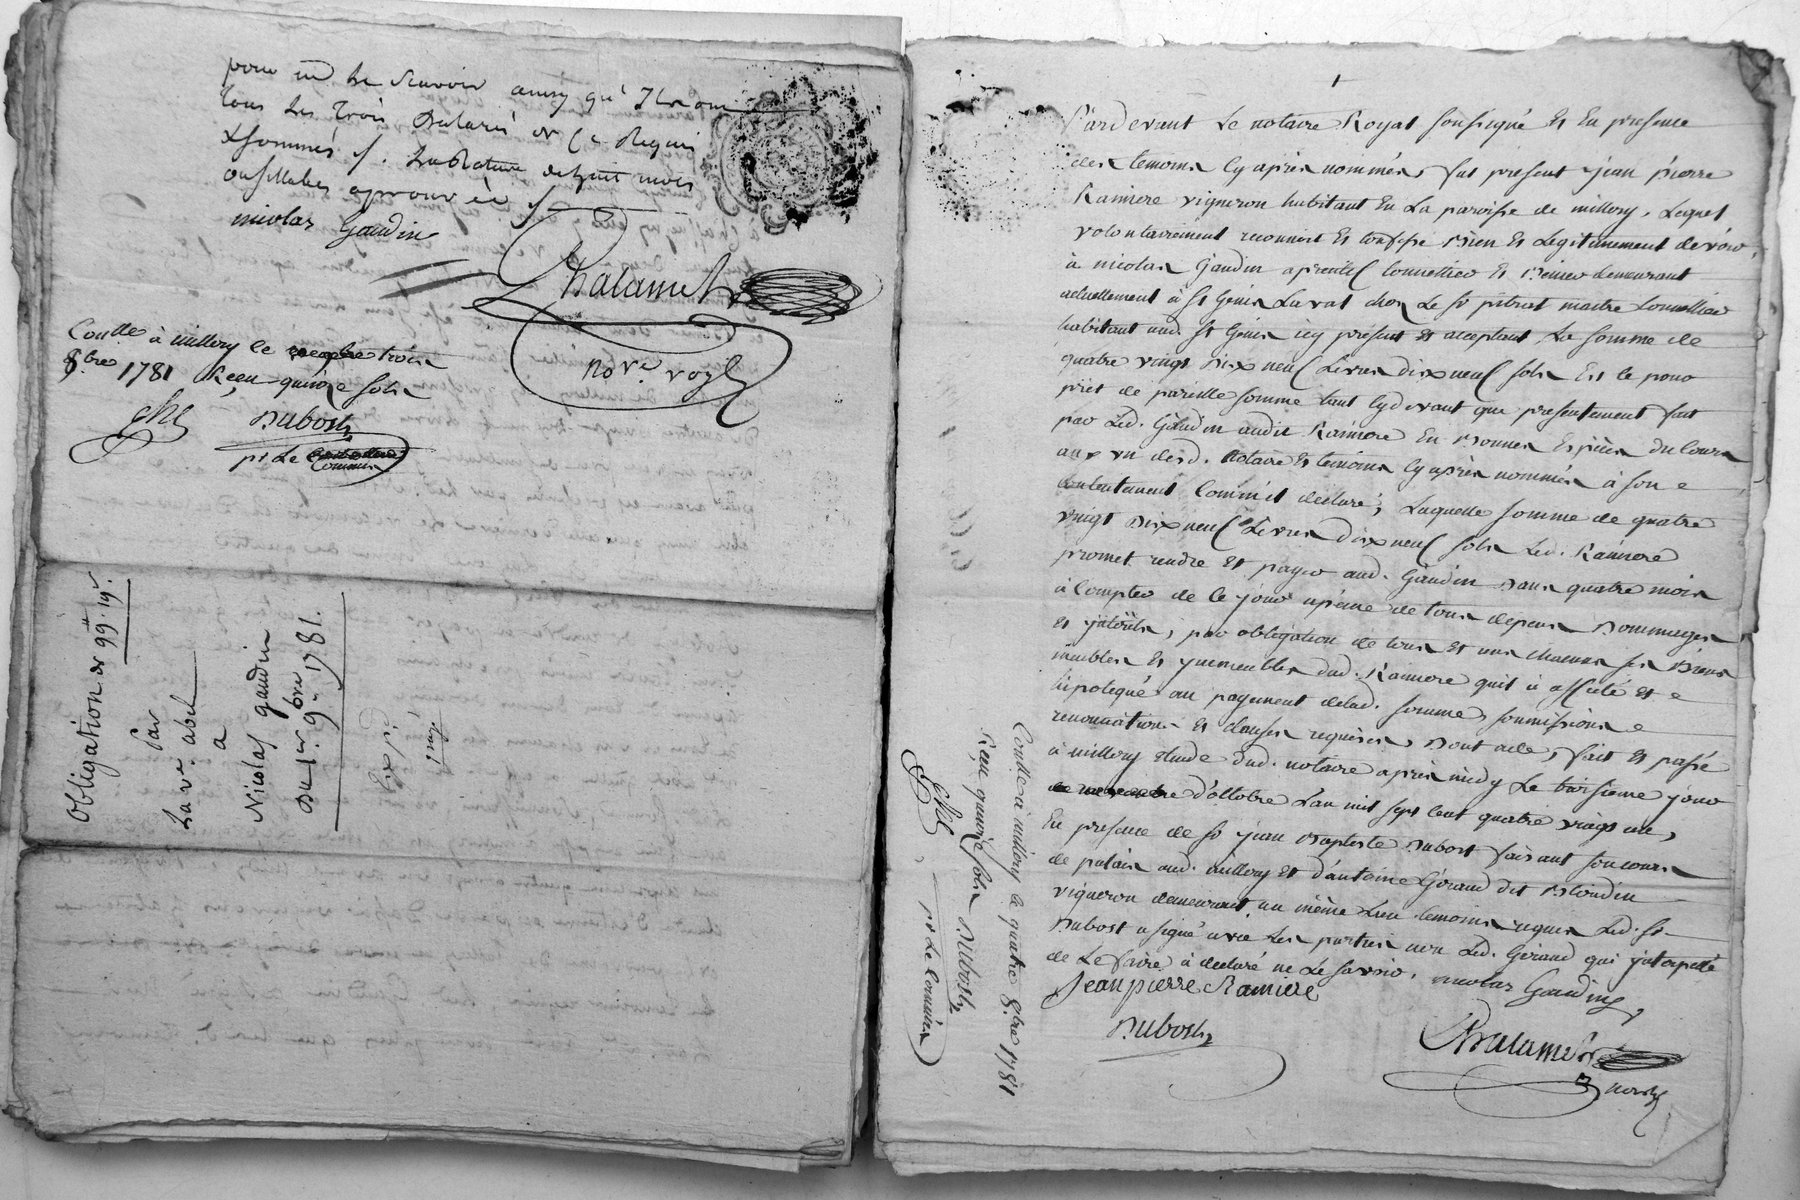 pour ne le scavoir ainsy qu'ils ont
tous les trois declaré de ce Requis
& sommés /. La Rature de huit mots
approuvée /
nicolas Gaudin
Chalamel
no.re royl
Con.lle à millery le trois
8.bre 1781 Reçu quinze sols
Dubost
pr Le Commis
Obligation de 99.tt 19.s
Par
La ve. abel
a
Nicolas gaudin
Du 1.er 9.bre 1781.
Exp.é
Pardevant Le notaire Royal soussigné Et En presence
des temoins Cy après nommés, fut present jean pierre
Ramiere vigneron habitant En La paroisse de millery, Lequel
volontairement reconnoit Et confesse Bien Et Legitimement devoir
à nicolas Gaudin aprentif tonnellier Et demeurant
actuellement à St Genis Laval chez Le Sr pitrat maitre tonnellier
habitant aud. St Genis icy présent Et acceptant La somme de
quatre vingt Dix neuf Livres dix neuf sols Et ce pour
prêt de pareille somme tant cydevant que presentement fait
par Led. Gaudin audit Ramiere En Bonnes Espèces du Cours
au vu desd. Notaire Et temoins Cy après nommés à son
contentement Comm'il declare; Laquelle somme de quatre
vingt Dix neuf Livres dix neuf sols Led. Ramiere
promet rendre Et payer aud. Gaudin Dans quatre mois
à Compter de ce jour à peine de tous depens Dommages
Et jnterets, par obligation de tous Et uns chacuns ses Biens
meubles Et jmmeubles dud. Ramiere qu'il a affecté Et
hipotequé au payement delad. somme, soumissions
renonciations Et clauses requises, Dont acte, fait Et passé
à millery Etude dud. notaire après midy Le troisieme jour
d'octobre L'an mil sept cent quatre vingt un,
En presence de Sr jean Baptiste Dubost faisant son cours
de palais aud. millery Et d'antoine Géraud dit Blondin
vigneron demeurant au même Lieu temoins requis Led. Sr
Dubost a signé avec Les parties non Led. Géraud qui jnterpellé
de Le faire à declaré ne Le savoir.
nicolas Gaudin
Jean pierre Ramiere
Dubost
Chalamel
Con.lle à millery le quatre 8.bre 1781
Reçu quinze sols Dubost
pr Le Commis